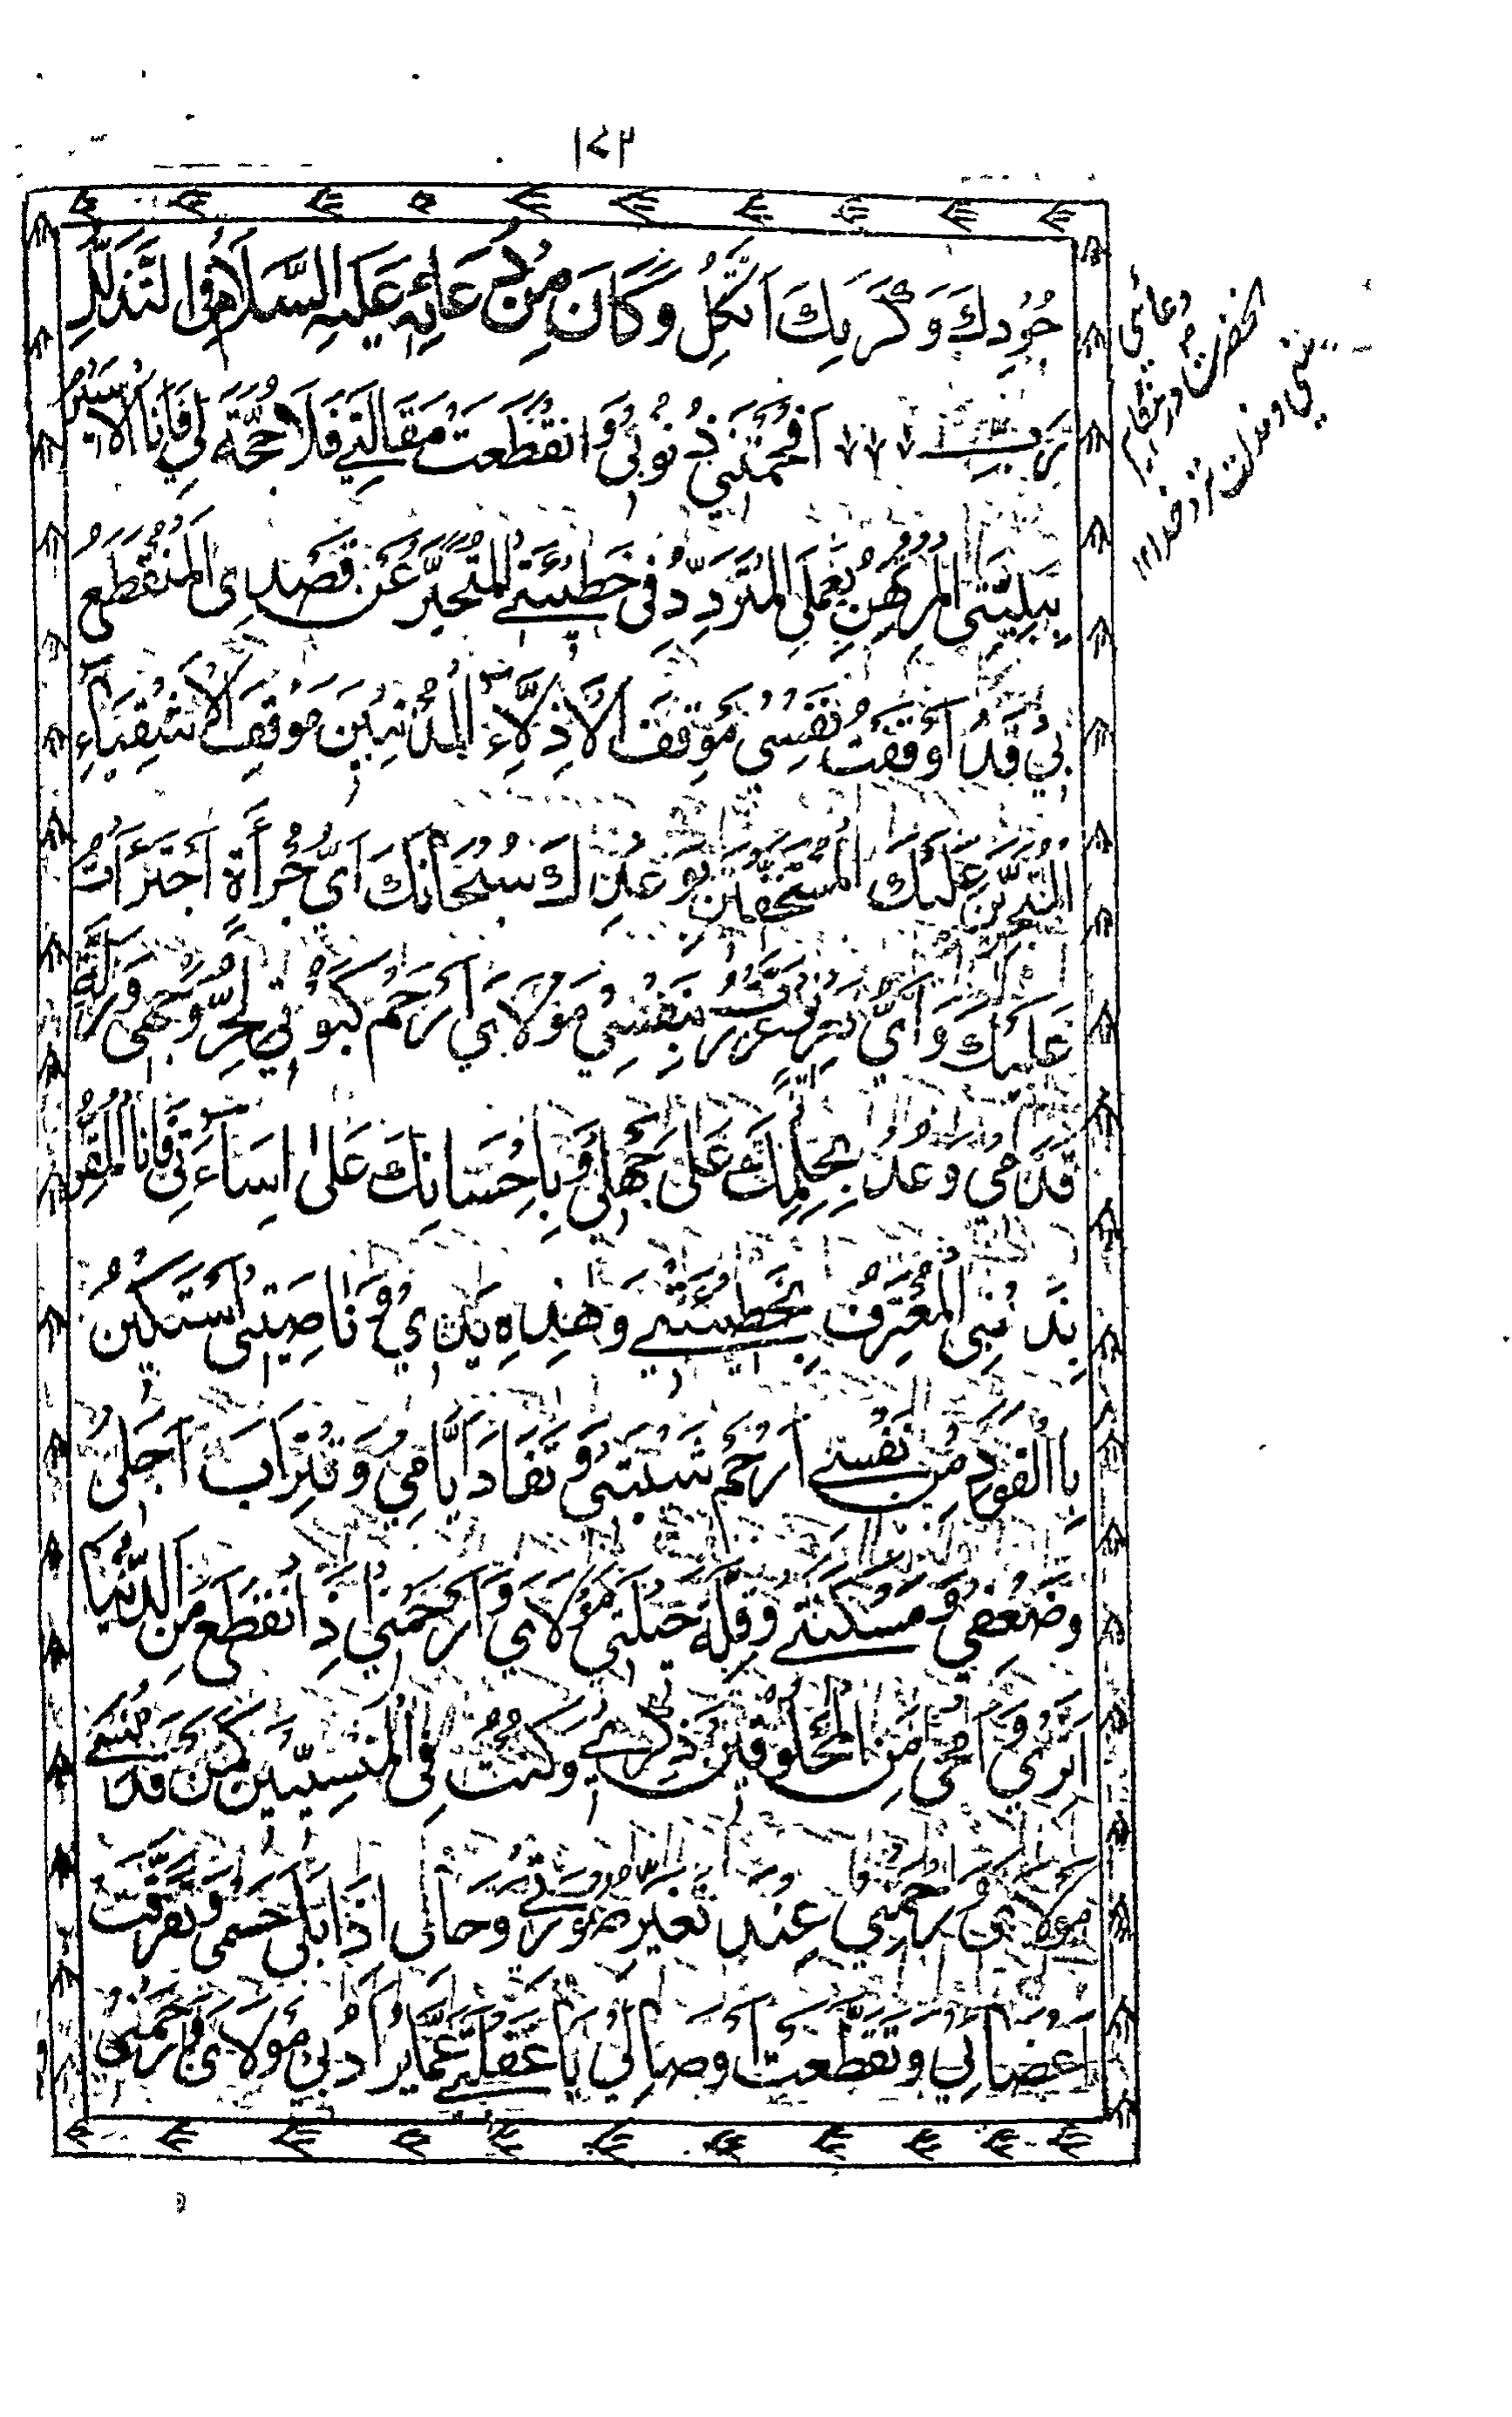 ١٤٣
جُوْدِكَ وَكَرَمِكَ اَتَّكِلُ وَكَانَ مِنْ دُعَائِهِ عَلَيْهِ السَّلَامُ فِي التَّذَلُّلِ
رَبِّ اَفْحَمَتْنِي ذُنُوْبِي وَانْقَطَعَتْ مَقَالَتِي فَلَا حُجَّةَ لِي فَاَنَا الْاَسِيْرُ
بِبَلِيَّتِي الْمُرْتَهَنُ بِعَمَلِي الْمُتَرَدِّدُ فِي خَطِيْئَتِي الْمُتَحَيِّرُ عَنْ قَصْدِي الْمُنْقَطَعُ
بِي قَدْ اَوْقَفْتُ نَفْسِي مَوْقِفَ الْاَذِلَّاءِ الْمُذْنِبِيْنَ مَوْقِفَ الْاَشْقِيَاءِ
الْمُتَجَرِّيْنَ عَلَيْكَ الْمُسْتَخِفِّيْنَ بِوَعْدِكَ سُبْحَانَكَ اَيَّ جُرْأَةٍ اجْتَرَأْتُ
عَلَيْكَ وَاَيَّ تَغْرِيْرٍ غَرَّرْتُ بِنَفْسِي مَوْلَايَ ارْحَمْ كَبْوَتِي لِحُرِّ وَجْهِي وَزَلَّةَ
قَدَمِي وَعُدْ بِحِلْمِكَ عَلَى جَهْلِي وَبِاِحْسَانِكَ عَلَى اِسَاءَتِي فَاَنَا الْمُقِرُّ
بِذَنْبِي الْمُعْتَرِفُ بِخَطِيْئَتِي وَهٰذِهِ يَدِي وَنَاصِيَتِي اَسْتَكِيْنُ
بِالْقَوَدِ مِنْ نَفْسِي ارْحَمْ شَيْبَتِي وَنَفَادَ اَيَّامِي وَاقْتِرَابَ اَجَلِي
وَضَعْفِي وَمَسْكَنَتِي وَقِلَّةَ حِيْلَتِي مَوْلَايَ وَارْحَمْنِي اِذَا انْقَطَعَ مِنَ الدُّنْيَا
اَثَرِي وَامَّحٰى مِنَ الْمَخْلُوْقِيْنَ ذِكْرِي وَكُنْتُ فِي الْمَنْسِيِّيْنَ كَمَنْ قَدْ نُسِيَ
مَوْلَايَ وَارْحَمْنِي عِنْدَ تَغَيُّرِ صُوْرَتِي وَحَالِي اِذَا بَلِيَ جِسْمِي وَتَفَرَّقَتْ
اَعْضَائِي وَتَقَطَّعَتْ اَوْصَالِي يَا غَفْلَتِي عَمَّا يُرَادُ بِي مَوْلَايَ وَارْحَمْنِي
دعائى